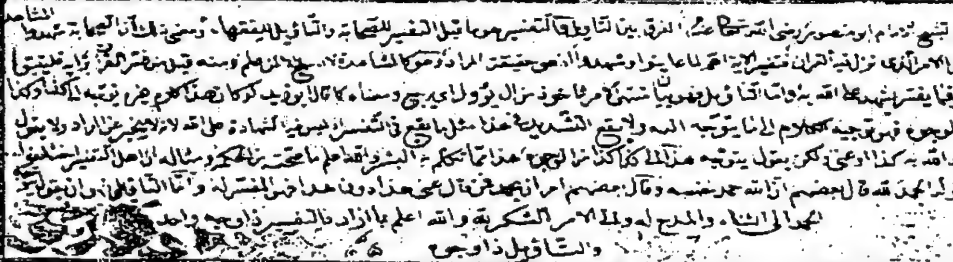 المشاهد
الشيخ الامام ابو منصور رضى الله تعالى عنه الفرق بين التاويل والتفسير هو ما قيل التفسير للصحابة والتاويل للفقهاء ومعنى ذلك ان الصحابة شهدوا
الامر الذى نزل فيه القران فتفسير الاية اهم لما عاينوا وشهدوا اذ هو حقيقة المراد وهو كالمشاهدة لا الا لمن علم ومنه قيل من فسر القران برايه فليتبوأ
فيما يفسر يشهد على الله به واما التاويل فهو بيان منتهى الامر ماخوذ من ال يؤول اى يرجع ومعناه كما قال ابو زيد لو كان هذا كلام غيره توجه الى كذا وكذا
الوجوه فهو توجيه الكلام الى ما يتوجه اليه ولا يقع التشديد فى هذا مثل ما يقع فى التفسير اذ ليس فيه الشهادة على الله لانه لا يخبر عن المراد ولا يقول
الله به كذا او عنى ولكن يقول يتوجه هذا الى كذا وكذا من الوجوه هذا مما تكلم به البشر والله اعلم ما صحبه من الحكمة ومثاله ان اهل التفسير اختلفوا
الحمد لله قال بعضهم ان الله حمد نفسه وقال بعضهم امر ان يحمد فمن قال عنى هذا دون هذا فهو المفسر له واما التاويل فهو ان يقول
الحمد الى الثناء والمدح له والى الامر بالشكر له والله اعلم بما اراد فالتفسير ذو وجه واحد
والتاويل ذو وجوه